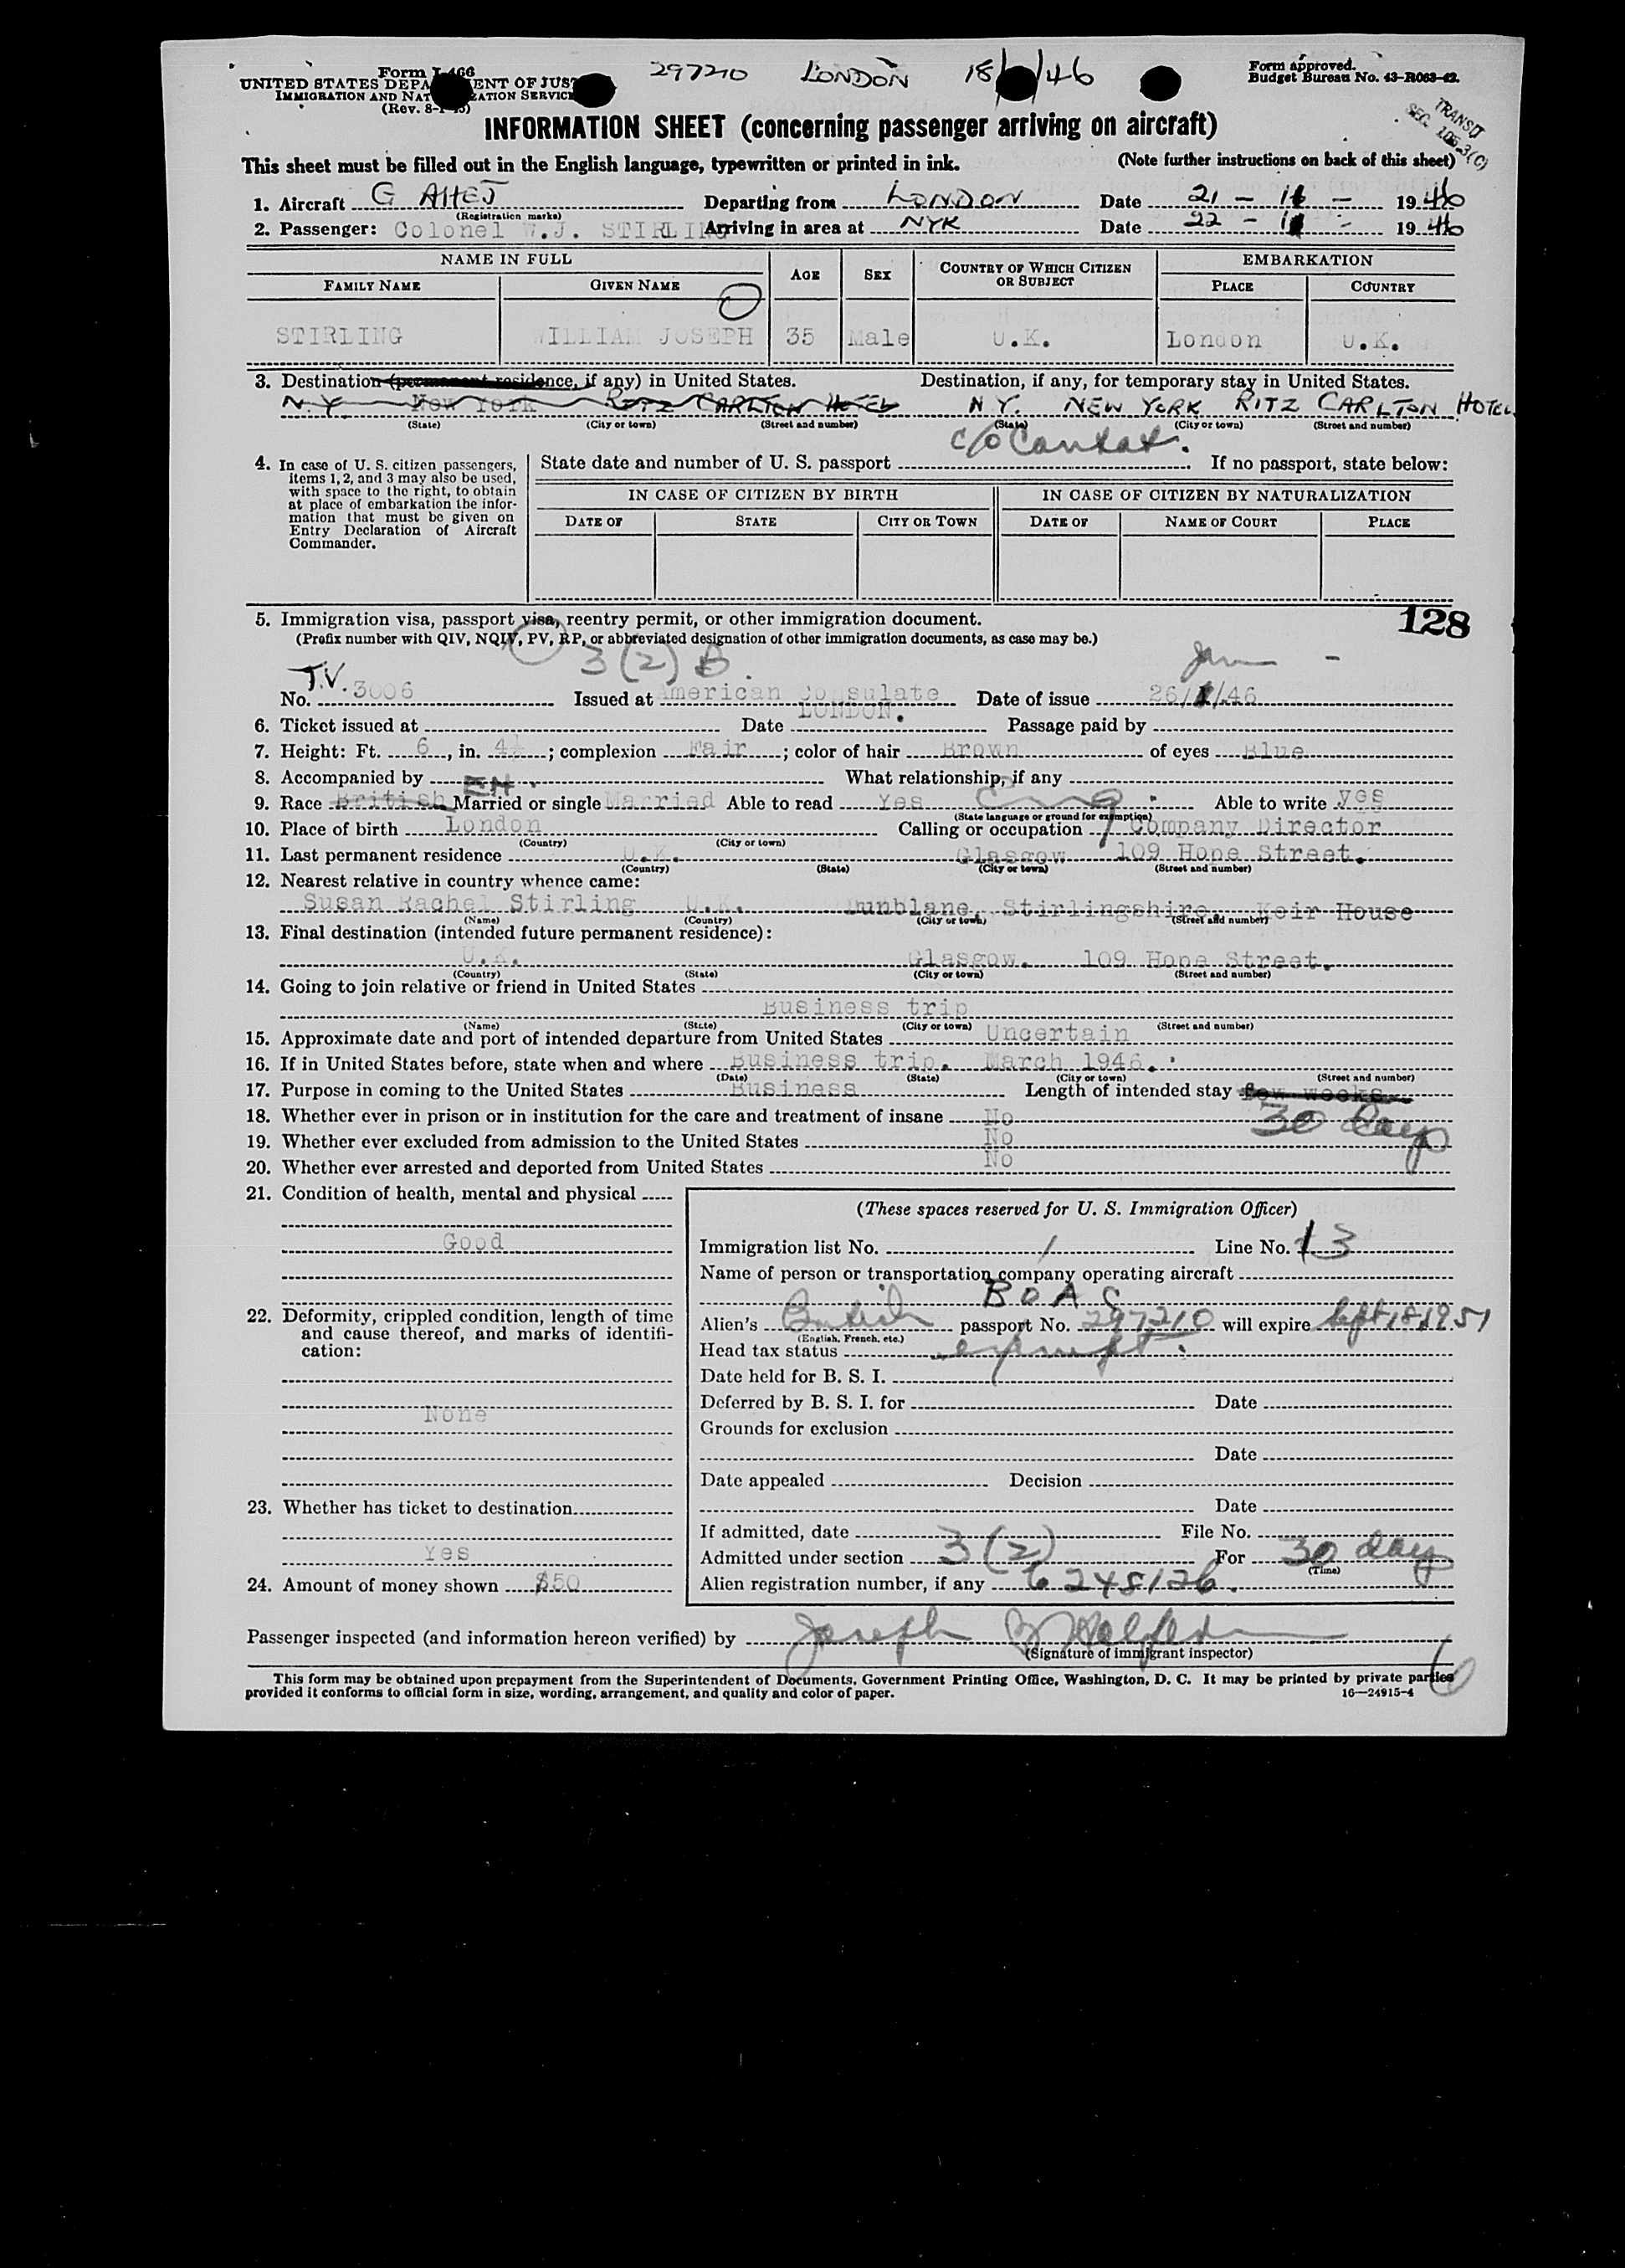 Form I-466
297210 LONDON 18/ /46
Form approved.
UNITED STATES DEPA ENT OF JUS
Budget Bureau No. 43-R063-42.
IMMIGRATION AND NAT ZATION SERVICE
(Rev. 8-1-45)
TRANSIT
SEC. 105-3(C)
INFORMATION SHEET (concerning passenger arriving on aircraft)
This sheet must be filled out in the English language, typewritten or printed in ink. (Note further instructions on back of this sheet)
1. Aircraft G AHEJ Departing from LONDON Date 21 - 11 - 1946
(Registration marks)
2. Passenger: Colonel W.J. STIRLING Arriving in area at NYK Date 22 - 11 - 1946
NAME IN FULL AGE SEX COUNTRY OF WHICH CITIZEN OR SUBJECT EMBARKATION
FAMILY NAME GIVEN NAME PLACE COUNTRY
STIRLING WILLIAM JOSEPH 35 Male U.K. London U.K.
3. Destination (permanent residence, if any) in United States. Destination, if any, for temporary stay in United States.
N.Y. New York RITZ CARLTON HOTEL N.Y. NEW YORK RITZ CARLTON HOTEL
(State) (City or town) (Street and number) (State) (City or town) (Street and number)
4. In case of U. S. citizen passengers, items 1, 2, and 3 may also be used, with space to the right, to obtain at place of embarkation the information that must be given on Entry Declaration of Aircraft Commander.
State date and number of U. S. passport If no passport, state below:
IN CASE OF CITIZEN BY BIRTH IN CASE OF CITIZEN BY NATURALIZATION
DATE OF STATE CITY OR TOWN DATE OF NAME OF COURT PLACE
128
5. Immigration visa, passport visa, reentry permit, or other immigration document.
(Prefix number with QIV, NQIV, PV, RP, or abbreviated designation of other immigration documents, as case may be.)
3 (2) B
T.V.
No. 3006 Issued at American Consulate Date of issue 26/ /46
LONDON.
6. Ticket issued at Date Passage paid by
7. Height: Ft. 6, in. 4½; complexion Fair; color of hair Brown of eyes Blue
8. Accompanied by What relationship, if any
9. Race British Married or single Married Able to read Yes Able to write yes
(State language or ground for exemption)
10. Place of birth London Calling or occupation Company Director
(Country) (City or town)
11. Last permanent residence U.K. Glasgow 109 Hope Street.
(Country) (State) (City or town) (Street and number)
12. Nearest relative in country whence came:
Susan Rachel Stirling U.K. Dunblane, Stirlingshire Keir House
(Name) (Country) (City or town) (Street and number)
13. Final destination (intended future permanent residence):
U.K. Glasgow. 109 Hope Street.
(Country) (State) (City or town) (Street and number)
14. Going to join relative or friend in United States
Business trip
(Name) (State) (City or town) (Street and number)
15. Approximate date and port of intended departure from United States Uncertain
16. If in United States before, state when and where Business trip. March 1946.
(Date) (State) (City or town) (Street and number)
17. Purpose in coming to the United States Business Length of intended stay few weeks
30 days
18. Whether ever in prison or in institution for the care and treatment of insane No
19. Whether ever excluded from admission to the United States No
20. Whether ever arrested and deported from United States No
21. Condition of health, mental and physical
Good
22. Deformity, crippled condition, length of time and cause thereof, and marks of identification:
None
23. Whether has ticket to destination
Yes
24. Amount of money shown $50
(These spaces reserved for U. S. Immigration Officer)
Immigration list No. 1 Line No. 13
Name of person or transportation company operating aircraft
BOAC
Alien's British passport No. 297210 will expire Sept 18, 1951
(English, French, etc.)
Head tax status exempt.
Date held for B. S. I.
Deferred by B. S. I. for Date
Grounds for exclusion
Date
Date appealed Decision
Date
If admitted, date File No.
Admitted under section 3 (2) For 30 days
(Time)
Alien registration number, if any 6248126.
Passenger inspected (and information hereon verified) by Joseph
(Signature of immigrant inspector)
This form may be obtained upon prepayment from the Superintendent of Documents, Government Printing Office, Washington, D. C. It may be printed by private parties
provided it conforms to official form in size, wording, arrangement, and quality and color of paper. 16—24915-4